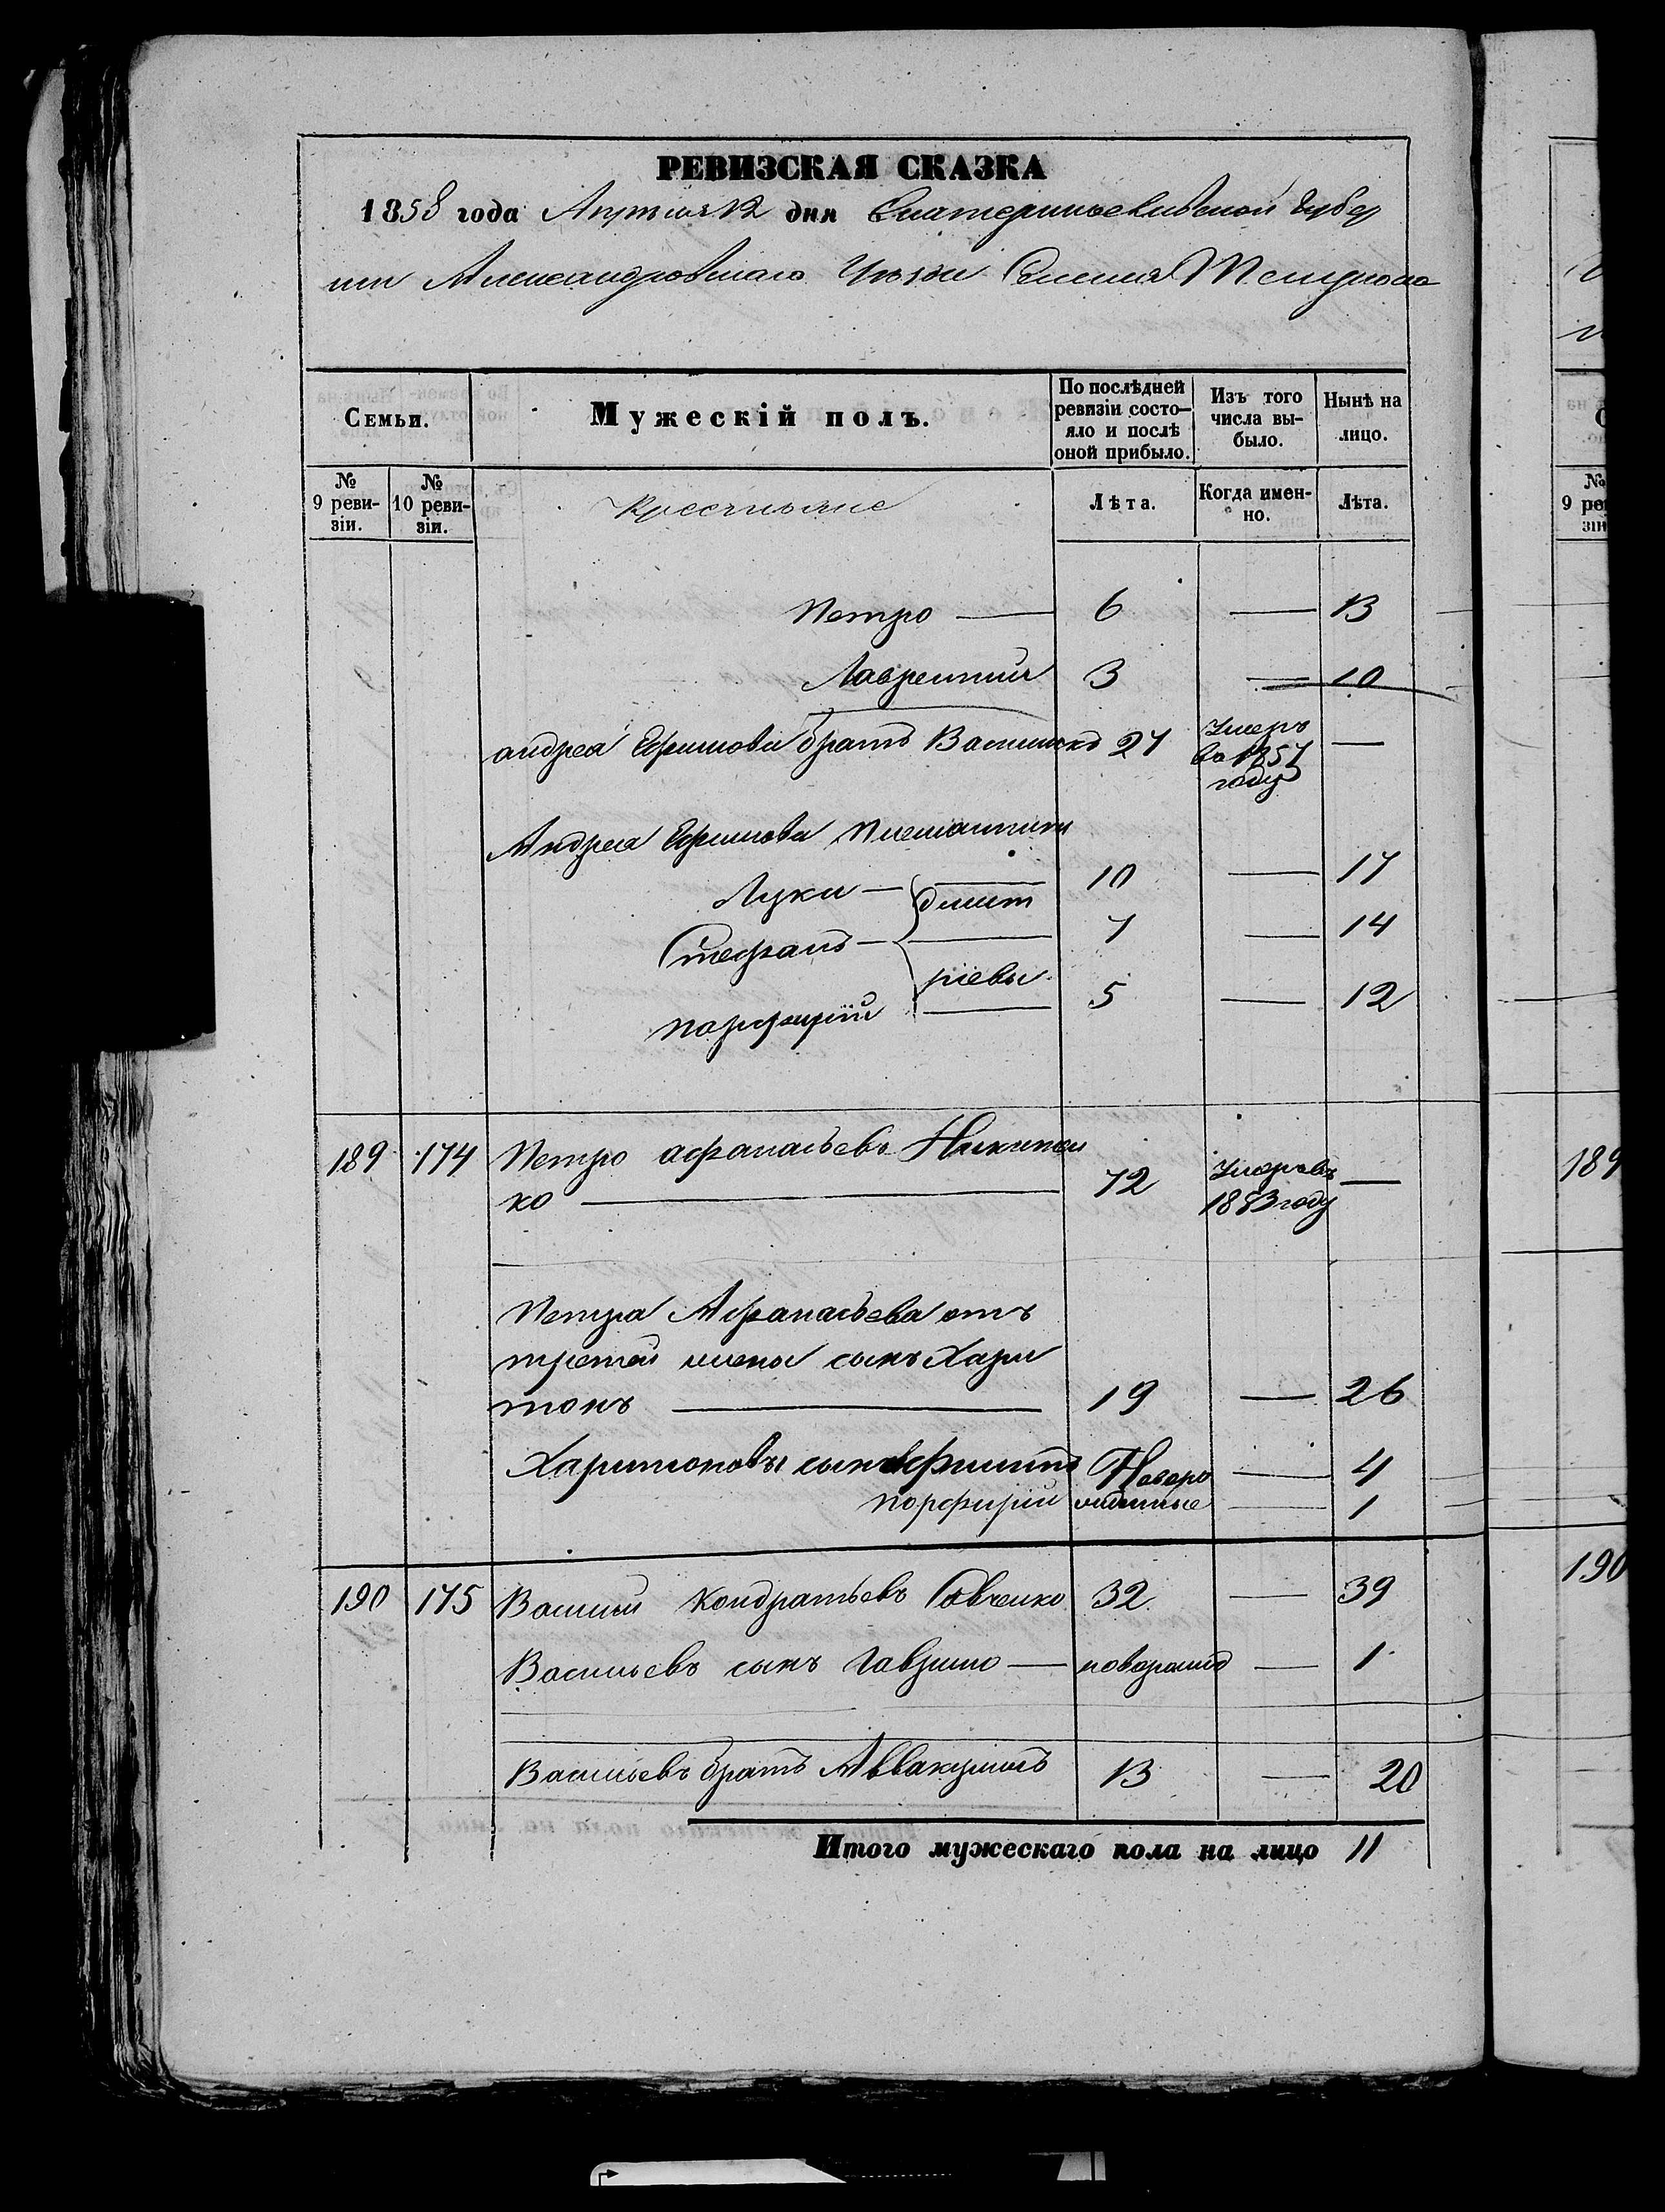 РЕВИЗСКАЯ СКАЗКА
1858 года Апреля 12 дня Екатеринославской Губер
нии Александровскаго Уезда Селения
Семьи.
Мужескій полъ.
По послѣдней ревизіи состо-
яло и послѣ
оной прибыло.
Изъ того
числа вы-
было.
Нынѣ на
лицо.
№
9 реви-
зіи.
№
10 реви-
зіи.
Крестьяне
Лѣта.
Когда имен-
но.
Лѣта.
Петро — 6 — 13
Лаврентий 3 — 10
андрея Ефимова братъ 27 Умеръ
въ 1857
году —
Андрея Ефимова племянники
Лука — 10 — 17
Дмит
Стефанъ — 7 — 14
ріевы
порфирій 5 — 12
189 174 Петро афанасьевъ Никитен
ко — 72 Умеръ въ
1853 году —
Петра Афанасьева отъ
третей жены сынъ Хари
тонъ — 19 — 26
Харитоновы Новоро — 4
порфирий жденные — 1
190 175 Василий Кондратьевъ Савченко 32 — 39
Васильевъ сынъ Гаврило — новорожд — 1
Васильевъ братъ Аввакумъ 13 — 20
Итого мужескаго пола на лицо 11
№
9 рев
зіи
189
190